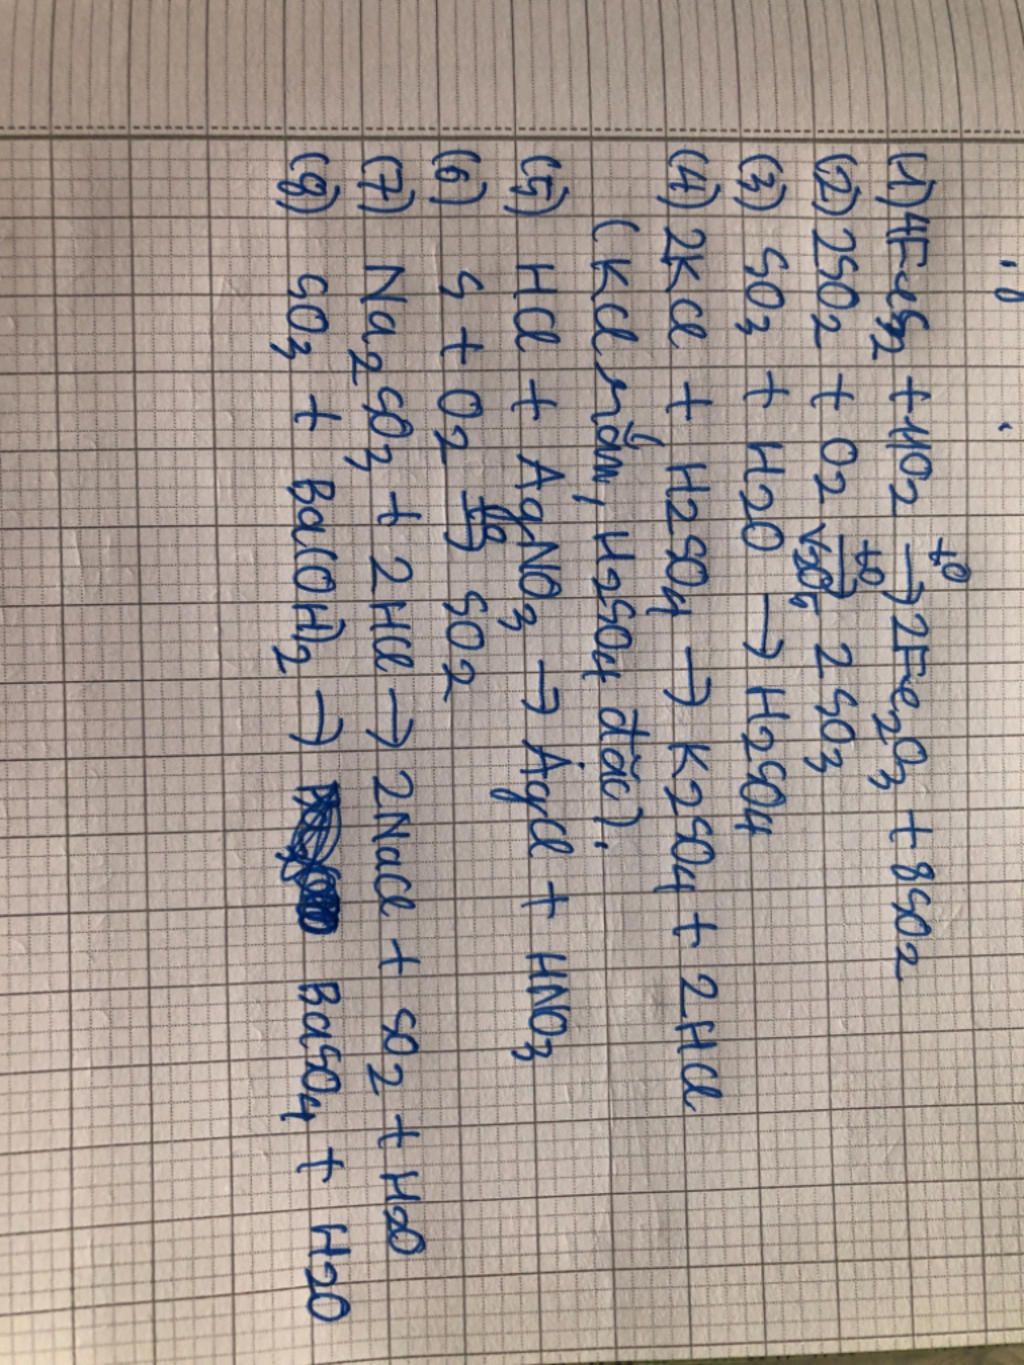 (1) 4FeS2 + 11O2 →t° 2Fe2O3 + 8SO2
(2) 2SO2 + O2 →t° V2O5 2SO3
(3) SO3 + H2O → H2SO4
(4) 2KCl + H2SO4 → K2SO4 + 2HCl
(KCl rắn, H2SO4 đặc).
(5) HCl + AgNO3 → AgCl + HNO3
(6) S + O2 →t° SO2
(7) Na2SO3 + 2HCl → 2NaCl + SO2 + H2O
(8) SO3 + Ba(OH)2 → BaSO4 + H2O